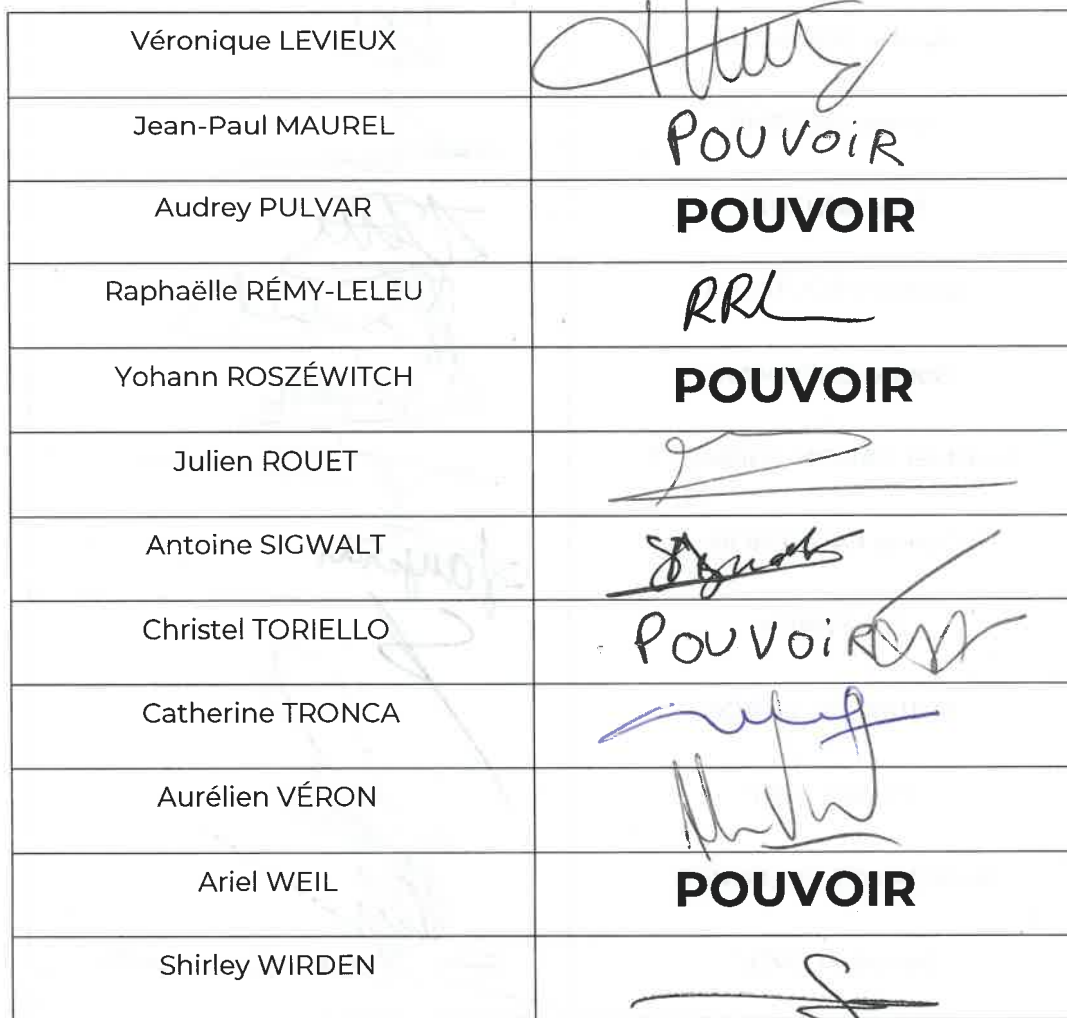 Véronique LEVIEUX
Jean-Paul MAUREL POUVOIR
Audrey PULVAR POUVOIR
Raphaëlle RÉMY-LELEU RRL
Yohann ROSZÉWITCH POUVOIR
Julien ROUET
Antoine SIGWALT
Christel TORIELLO POUVOIR
Catherine TRONCA
Aurélien VÉRON
Ariel WEIL POUVOIR
Shirley WIRDEN